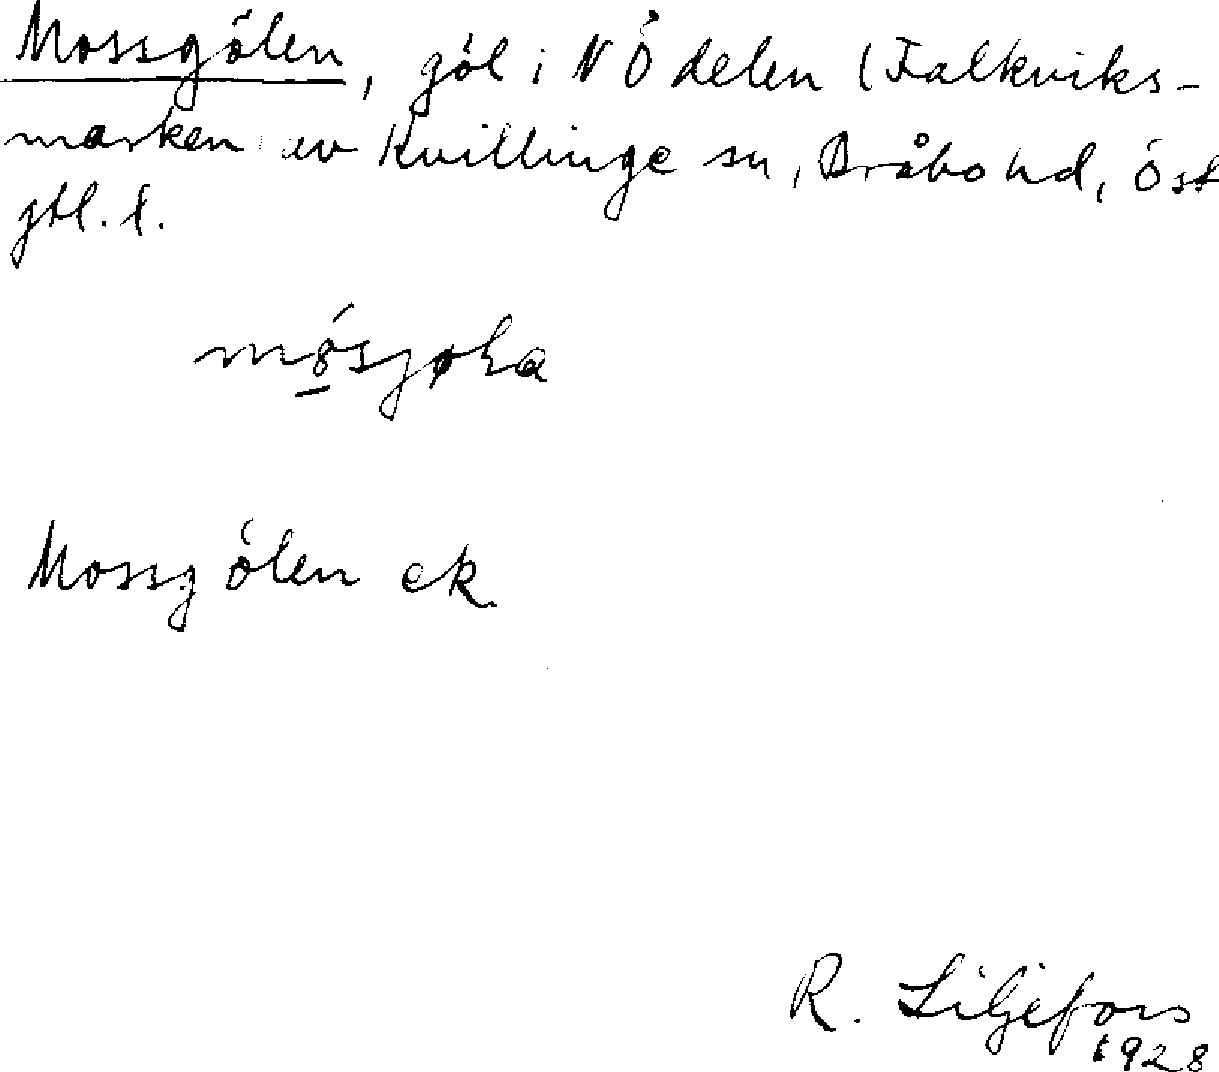 Mossgölen, göl i NÖ delen (Falkviks-
marken av Kvillinge sn, Bråbo hd, Öst
gtl. l.
Mossgölen ek.
R. Liljefors
1928